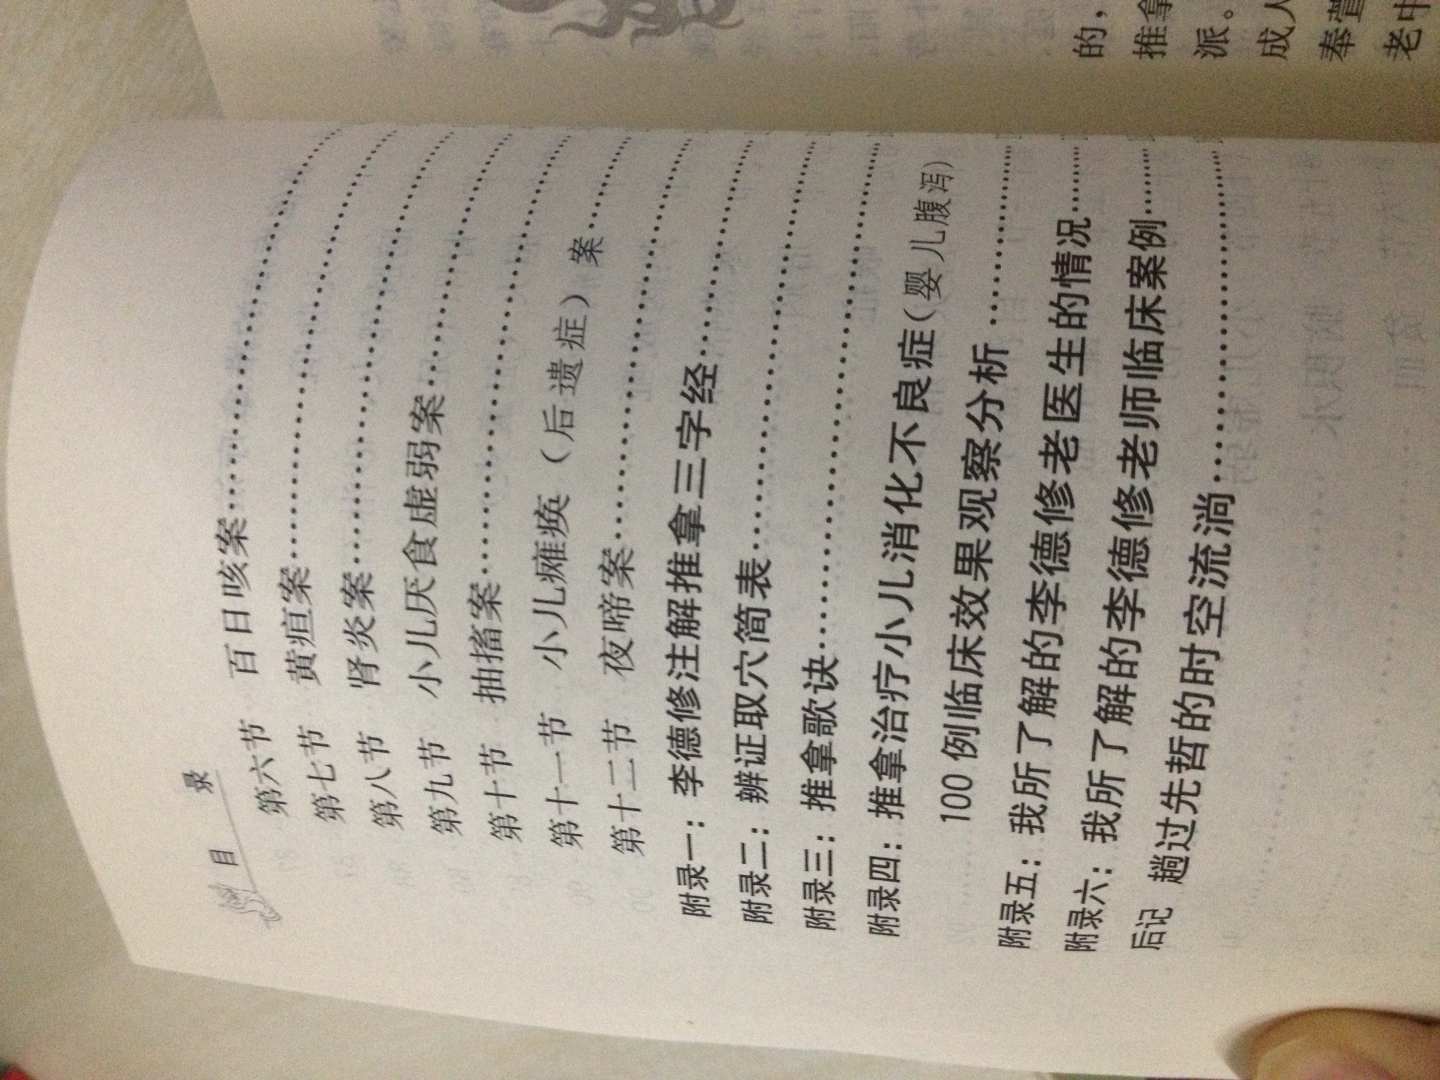 目 录
第六节 百日咳案
第七节 黄疸案
第八节 肾炎案
第九节 小儿厌食虚弱案
第十节 抽搐案
第十一节 小儿瘫痪（后遗症）案
第十二节 夜啼案
附录一：李德修注解推拿三字经
附录二：辨证取穴简表
附录三：推拿歌诀
附录四：推拿治疗小儿消化不良症（婴儿腹泻）
100例临床效果观察分析
附录五：我所了解的李德修老医生的情况
附录六：我所了解的李德修老师临床案例
后记 趟过先哲的时空流淌
的，
推拿
派。
成人
奉萱
老中